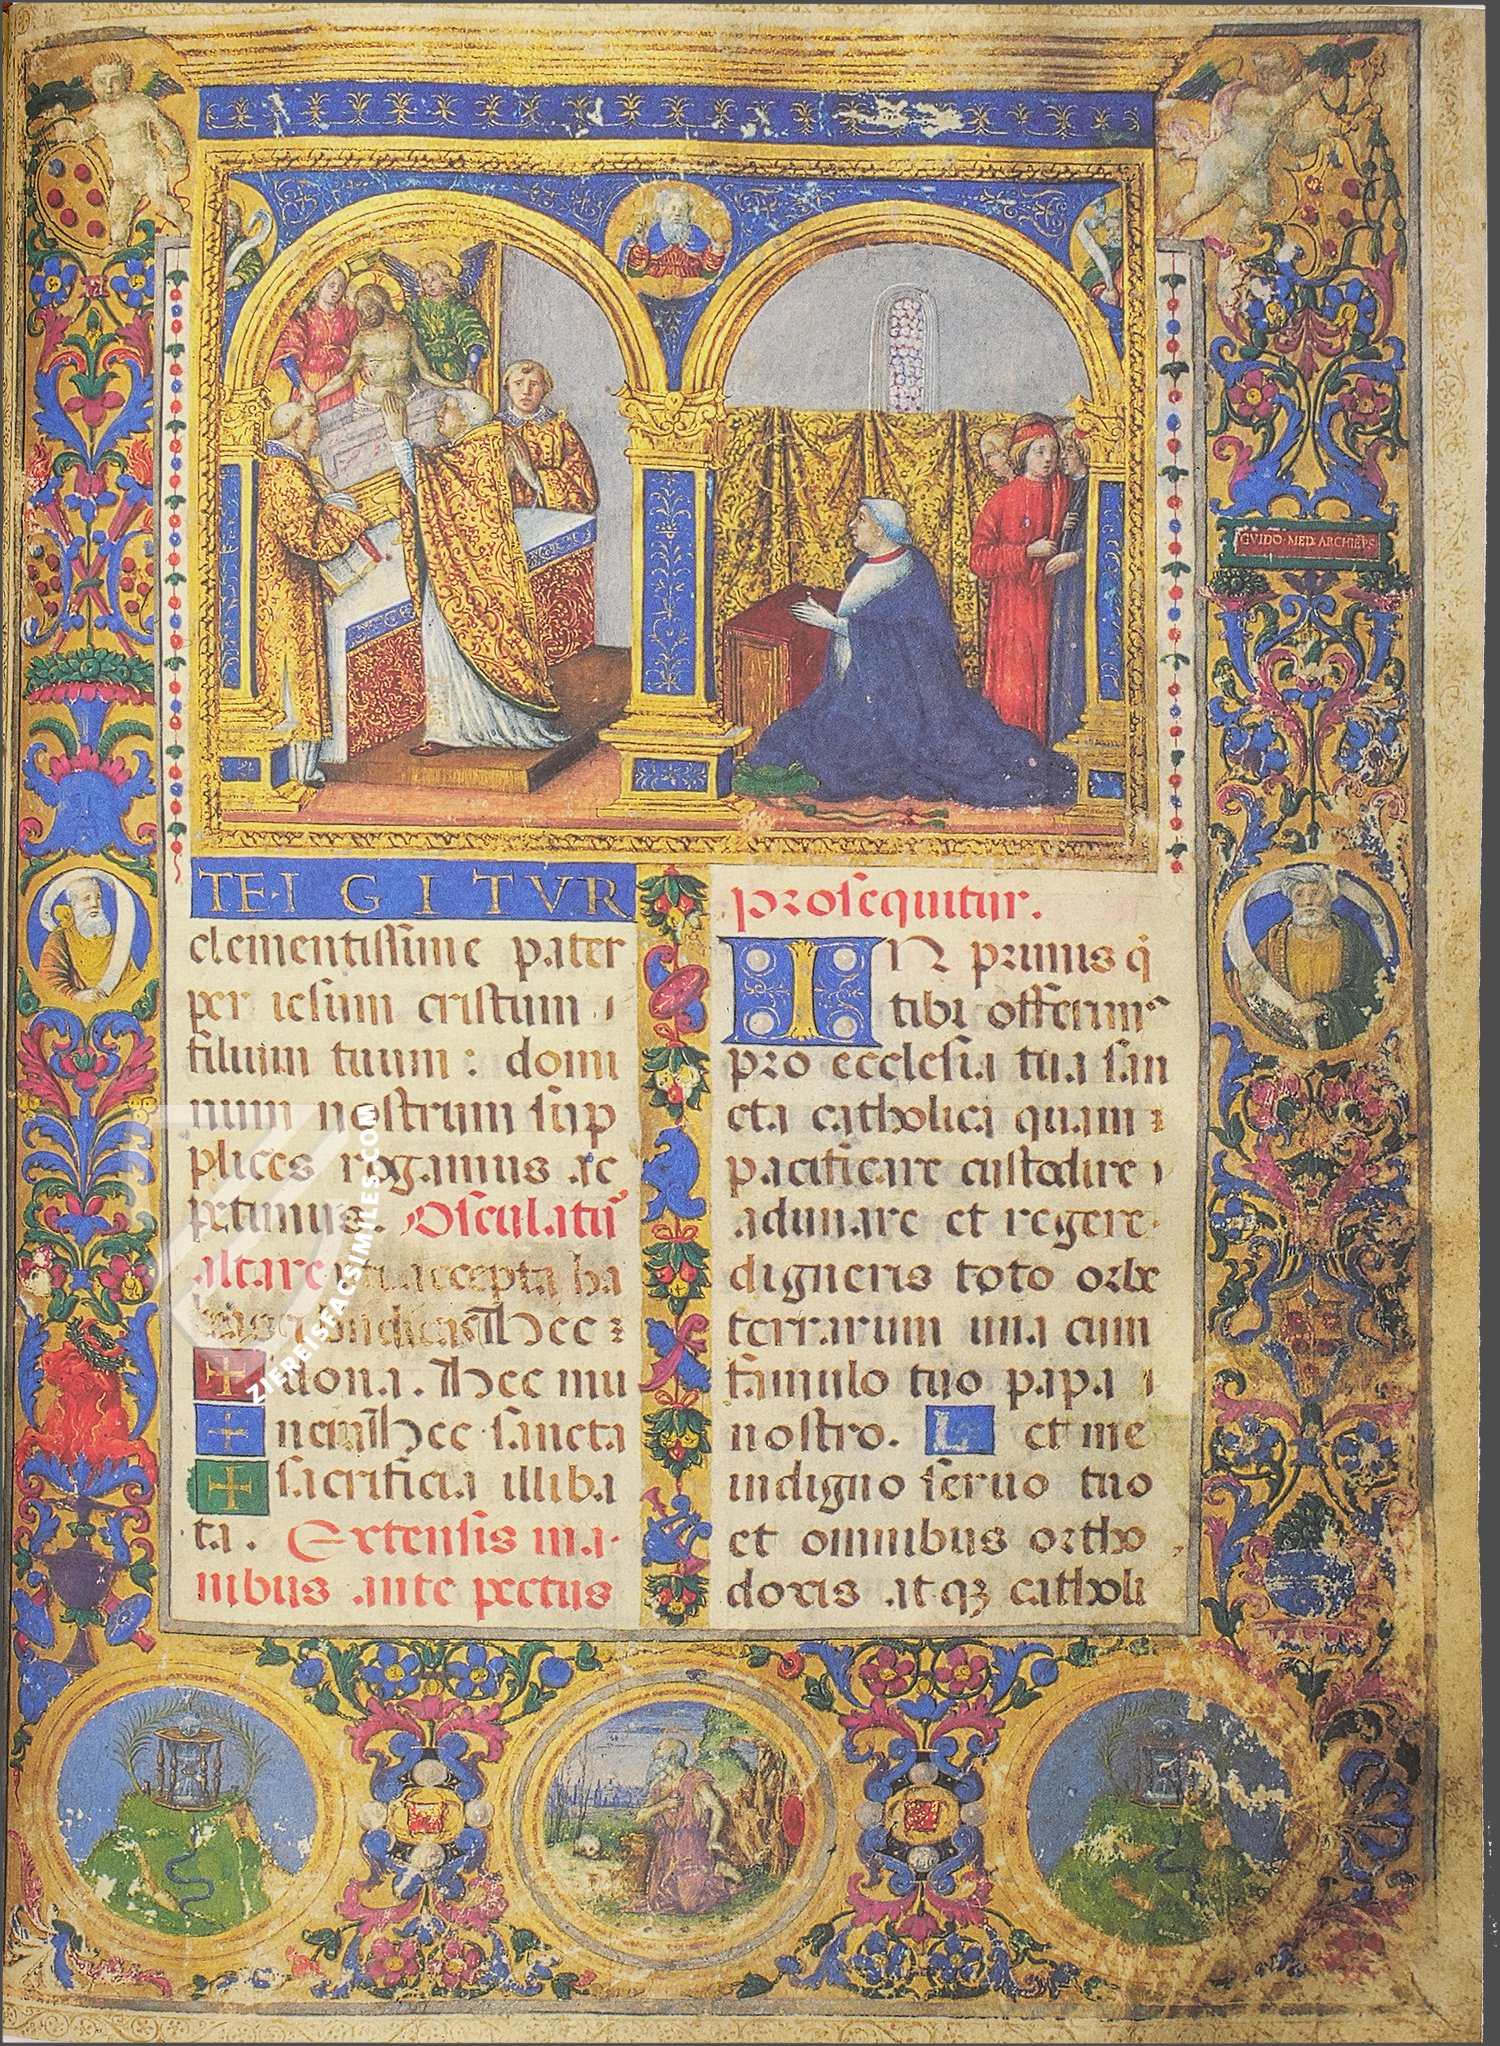 GVIDO·MED·ARCHIEPS
TE·I G I T V R
clementissime pater
per iesum cristum
filium tuum: domi
num nostrum sup
plices rogamus ac
petimus. Osculatũ
altare uti accepta ha
Hec
dona. Hec mu
nera Hec sancta
sacrificia illiba
ta. Extensis ma-
nibus ante pectus
prosequitur.
IN primis q̃
tibi offerim⁹
pro ecclesia tua san
cta catholica quam
pacificare custodire
adunare et regere
digneris toto orbe
terrarum una cum
famulo tuo papa
nostro. L et me
indigno seruo tuo
et omnibus ortho
doxis atqꝫ catholi
ZIEREISFACSIMILES.COM